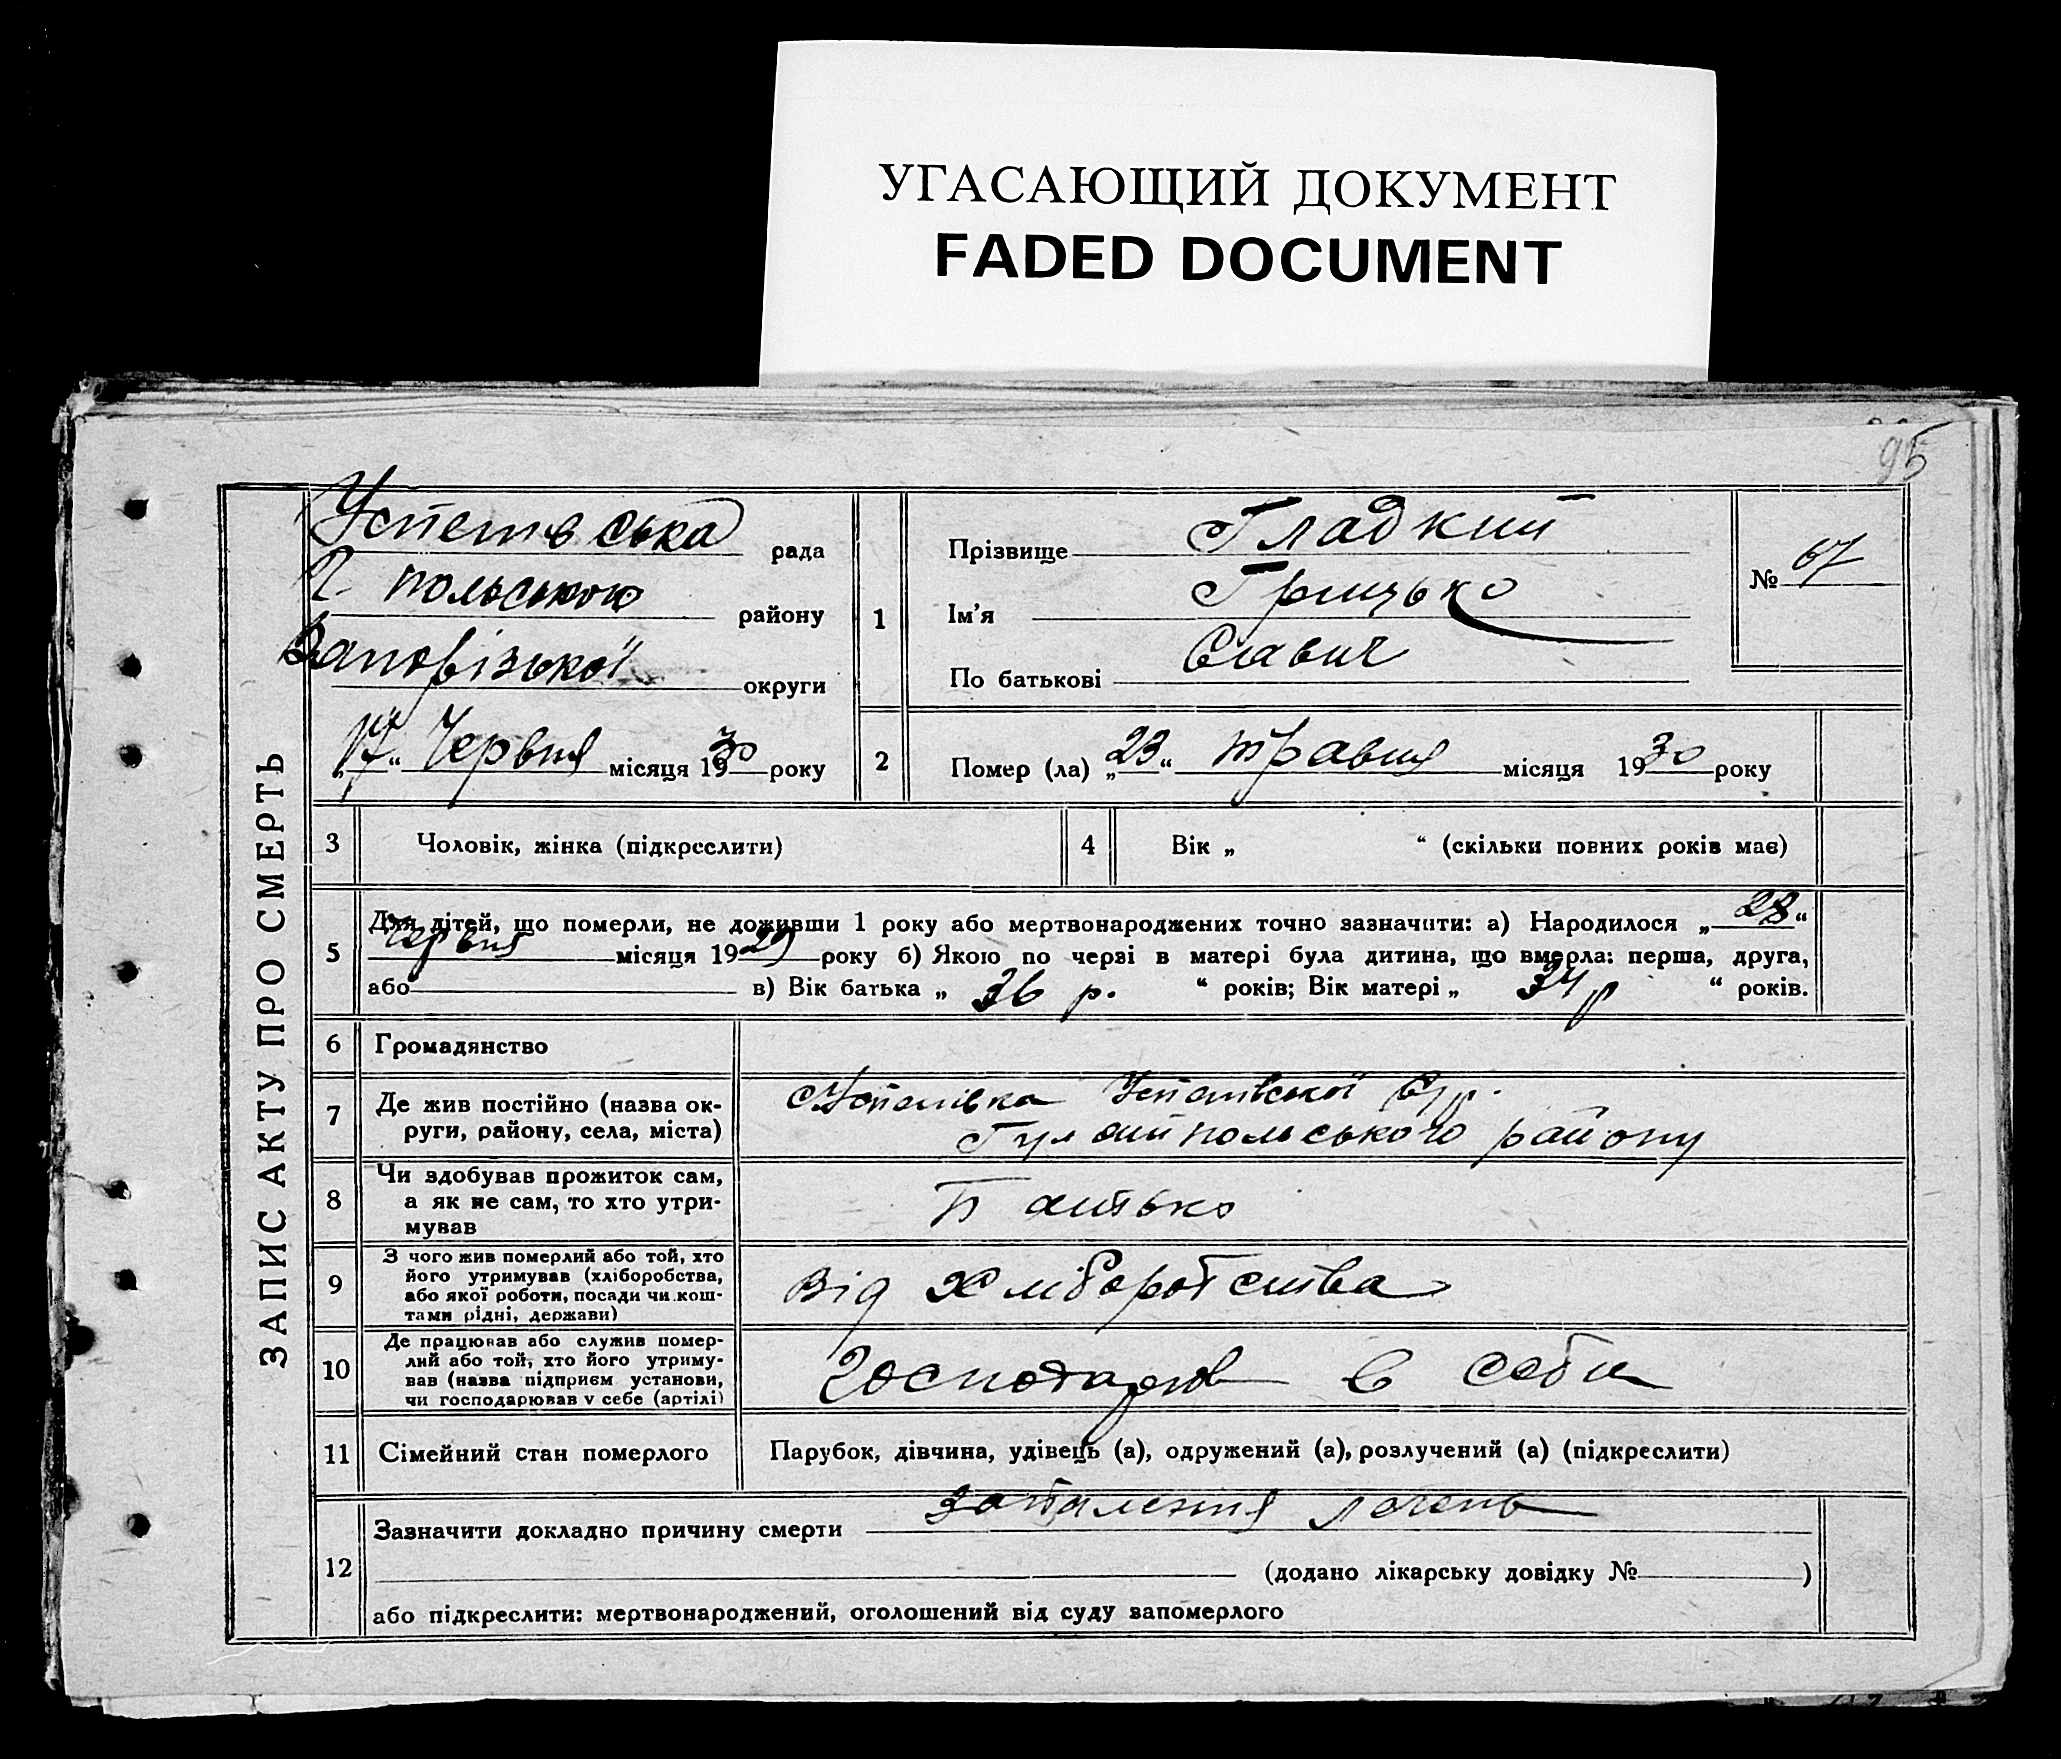 УГАСАЮЩИЙ ДОКУМЕНТ
FADED DOCUMENT
95
ЗАПИС АКТУ ПРО СМЕРТЬ
Успенівська рада
Г. польського району
Запорізької округи
„17“ Червня місяця 1930 року
1
Прізвище Гладкий
Ім’я Грицько
По батькові Савич
№ 67
2
Помер (ла) „23“ травня місяця 1930 року
3 Чоловік, жінка (підкреслити)
4 Вік „ “ (скільки повних років має)
5
Для дітей, що померли, не доживши 1 року або мертвонароджених точно зазначити: а) Народилося „28“
червня місяця 1929 року б) Якою по черзі в матері була дитина, що вмерла: перша, друга,
або в) Вік батька „ 36 р. “ років; Вік матері „ 34 р “ років.
6 Громадянство
7 Де жив постійно (назва ок-
руги, району, села, міста)
Успенівка Успенівської с/р.
Гуляйпольського району
8 Чи здобував прожиток сам,
а як не сам, то хто утри-
мував
Батько
9 З чого жив померлий або той, хто
його утримував (хліборобства,
або якої роботи, посади чи кош-
тами рідні, держави)
Від хліборобства
10 Де працював або служив помер-
лий або той, хто його утриму-
вав (назва підприєм установи,
чи господарював у себе (артілі)
Господарюв в себе
11 Сімейний стан померлого
Парубок, дівчина, удівець (а), одружений (а), розлучений (а) (підкреслити)
12
Зазначити докладно причину смерти запалення легень
(додано лікарську довідку № )
або підкреслити: мертвонароджений, оголошений від суду запомерлого